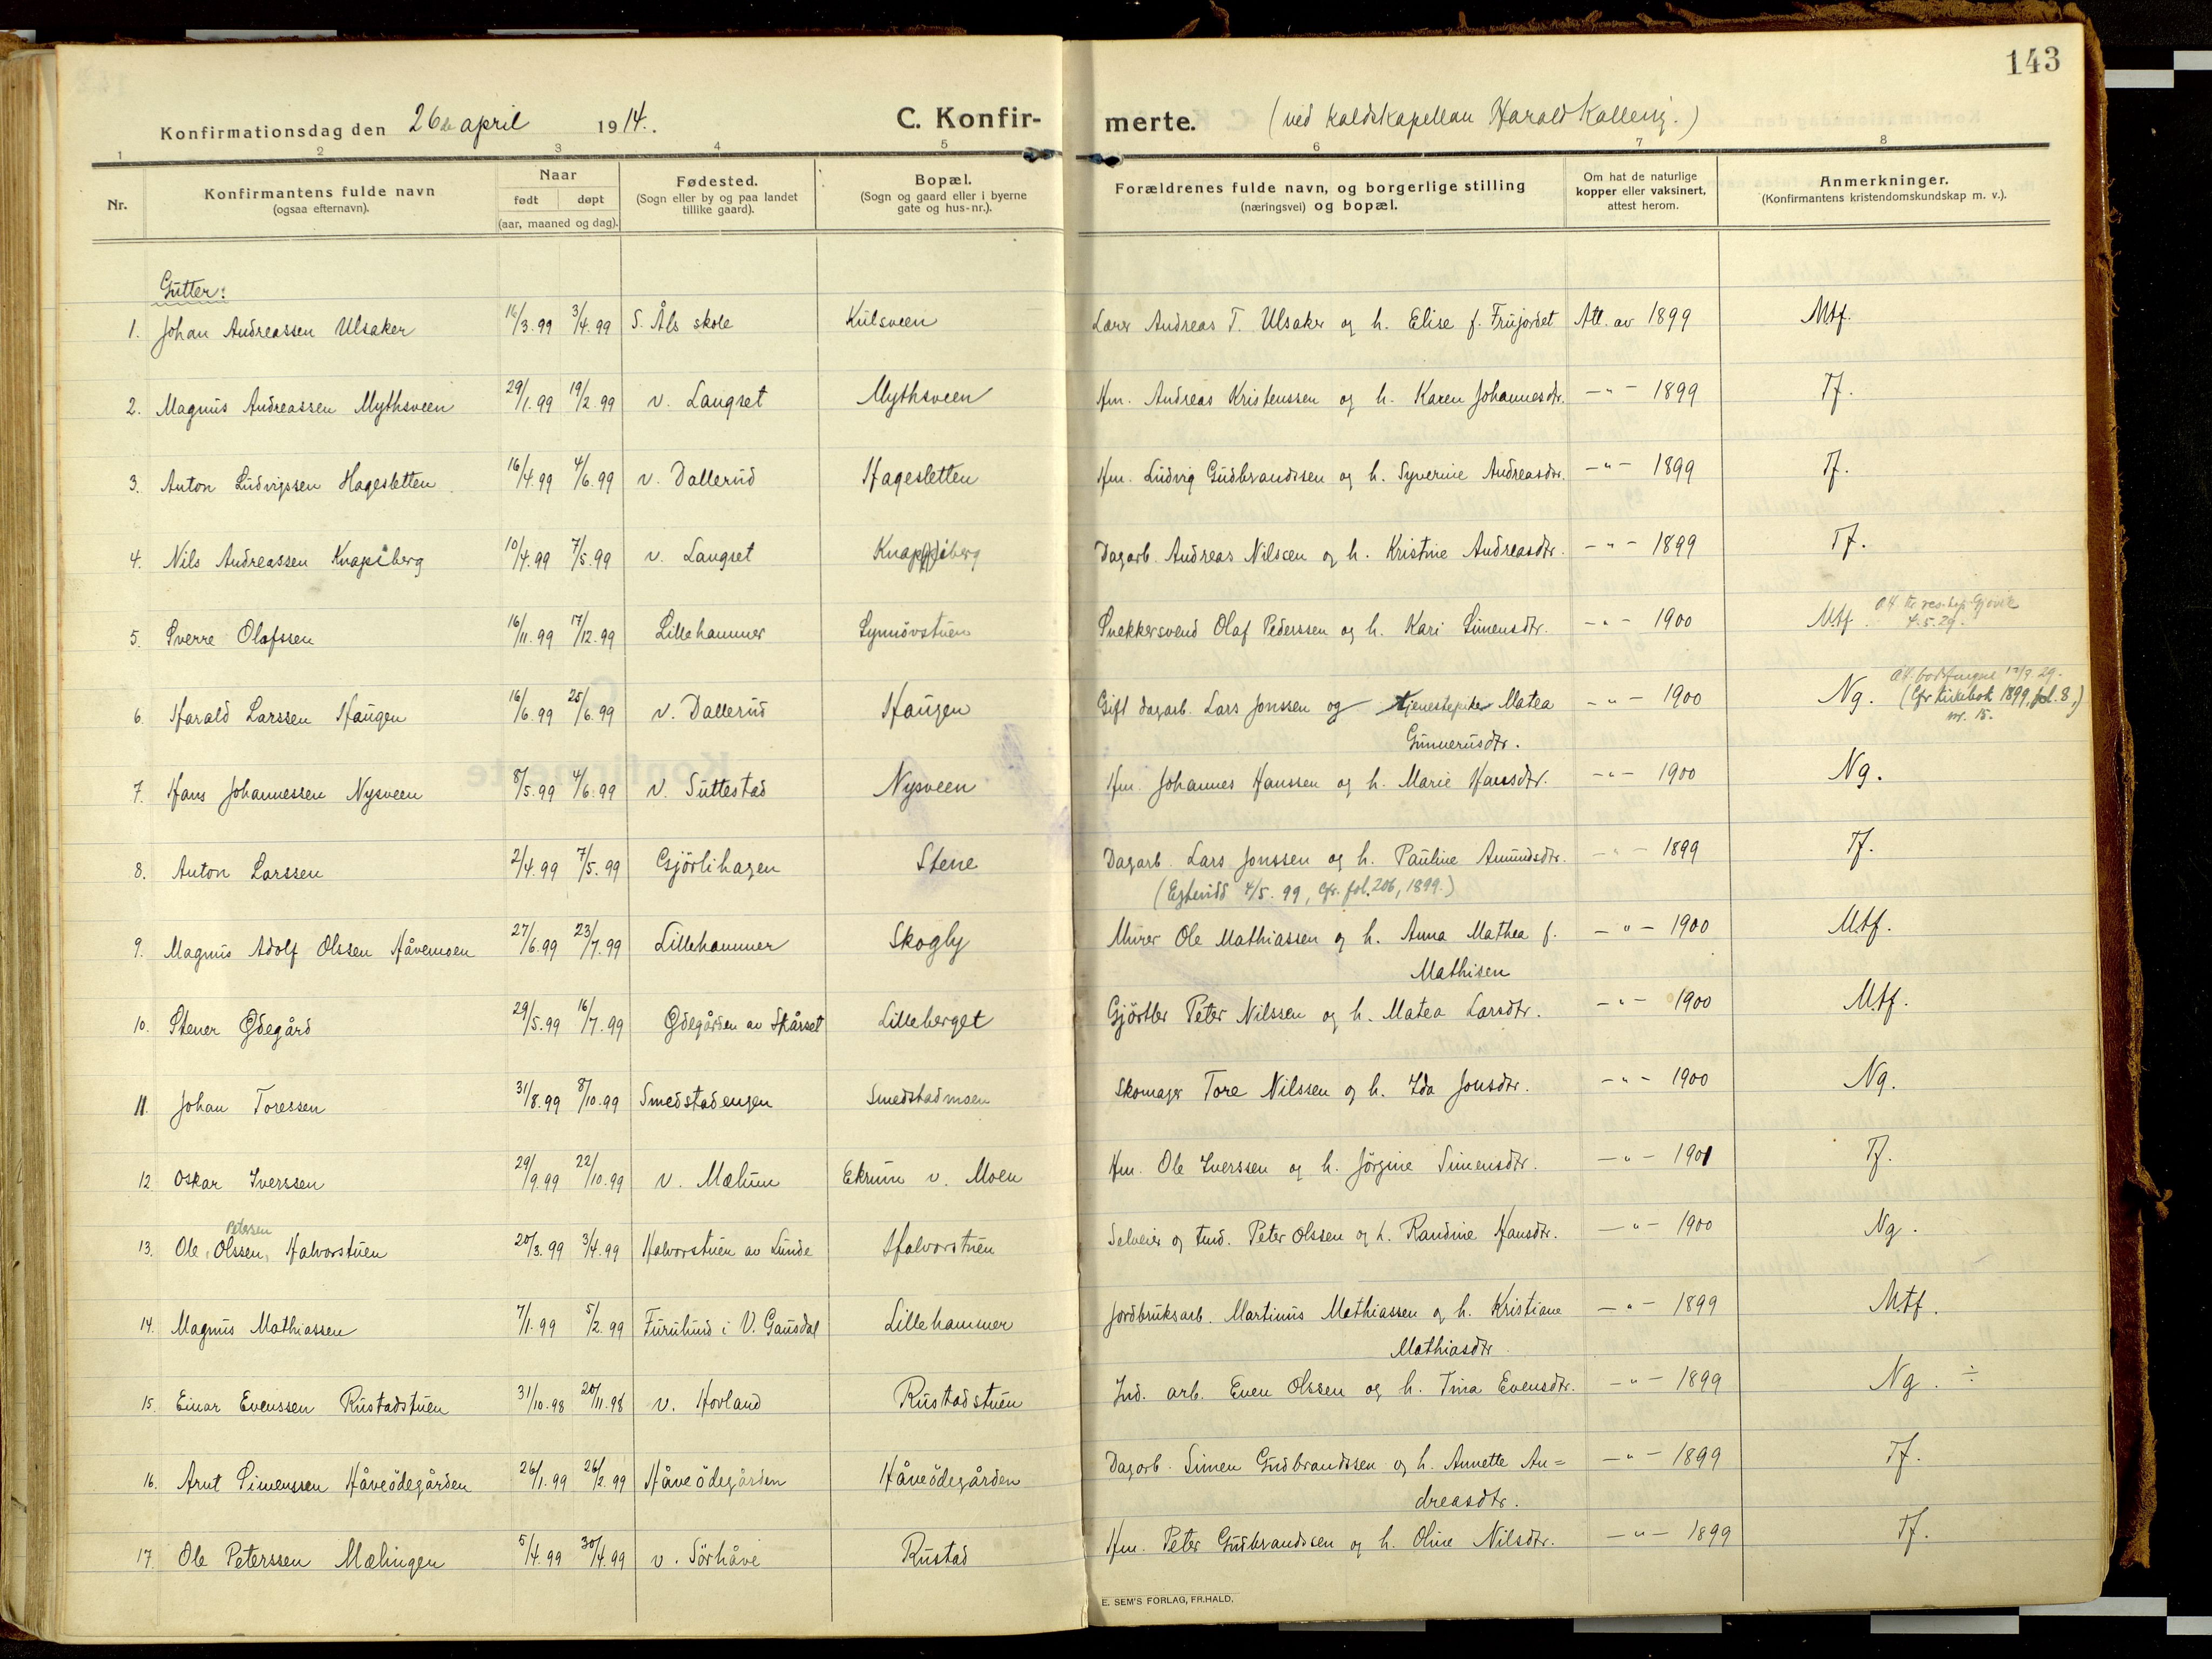 143
Konfirmationsdag den 26de april 1914. C. Konfir-merte. (ved kaldskapellan Harald Kallevig.)
1 2 3 4 5 6 7 8
Nr. Konfirmantens fulde navn (ogsaa efternavn). Naar født døpt (aar, maaned og dag). Fødested. (Sogn eller by og paa landet tillike gaard). Bopæl. (Sogn og gaard eller i byerne gate og hus-nr.). Forældrenes fulde navn, og borgerlige stilling (næringsvei) og bopæl. Om hat de naturlige kopper eller vaksinert, attest herom. Anmerkninger. (Konfirmantens kristendomskundskap m. v.).
Gutter:
1. Johan Andreassen Ulsaker 16/3.99 3/4.99 S. Åls skole Kulsveen Lærer Andreas T. Ulsaker og h. Elise f. Frujordet Att. av 1899 Mtf.
2. Magnus Andreassen Mythsveen 29/1.99 19/2.99 v. Langset Mythsveen Hm. Andreas Kristenssen og h. Karen Johannesdtr. -"- 1899 Tf.
3. Anton Ludvigssen Hagesletten 16/4.99 4/6.99 v. Dallerud Hagesletten Hm. Ludvig Gudbrandssen og h. Syverine Andreasdtr. -"- 1899 Tf.
4. Nils Andreassen Knapiberg 10/4.99 7/5.99 v. Langset Knapiberg Dagarb. Andreas Nilssen og h. Kristine Andreasdtr. -"- 1899 Tf.
5. Sverre Olafssen 16/11.99 17/12.99 Lillehammer Synnøvstuen Snekkersvend Olaf Pederssen og h. Kari Simensdtr. -"- 1900 Mtf. Att. res. kap. Gjøvik
4.5.29.
6. Harald Larssen Haugen 16/6.99 25/6.99 v. Dallerud Haugen Gift dagarb. Lars Jonssen og tjenestepike Matea -"- 1900 Ng. (Cfr kirkebok 1899, fol. 8,)
Gunnerusdtr. nr. 15.
7. Hans Johannessen Nysveen 8/5.99 4/6.99 v. Suttestad Nysveen Hm. Johannes Hanssen og h. Marie Hansdtr. -"- 1900 Ng.
8. Anton Larssen 2/4.99 7/5.99 Gjörlihagen Stene Dagarb. Lars Jonssen og h. Pauline Amundsdtr. -"- 1899 Tf.
(Egtevidd 4/5.99, cfr. fol. 206, 1899.)
9. Magnus Adolf Olssen Håvemoen 27/6.99 23/7.99 Lillehammer Skogly Murer Ole Mathiassen og h. Anna Mathea f. -"- 1900 Mtf.
Mathisen
10. Stener Ødegård 29/5.99 16/7.99 Ødegården av Skårset Lilleberget Gjörtler Peter Nilssen og h. Matea Larsdtr. -"- 1900 Mtf.
11. Johan Toressen 31/8.99 8/10.99 Smedstadengen Smedstadmoen Skomager Tore Nilssen og h. Ida Jonsdtr. -"- 1900 Ng.
12 Oskar Iverssen 29/9.99 22/10.99 v. Mælum Ekrum v. Moen Hm. Ole Iverssen og h. Jörgine Simensdtr. -"- 1901 Tf.
Petersen
13. Ole Olssen Halvorstuen 20/3.99 3/4.99 Halvorstuen av Lunde Halvorstuen Selveier og tmd. Peter Olssen og h. Randine Hansdtr. -"- 1900 Ng.
14. Magnus Mathiassen 7/1.99 5/2.99 Furulund i V. Gausdal Lillehammer Jordbruksarb. Martinus Mathiassen og h. Kristiane -"- 1899 Mtf.
Mathiasdtr.
15. Einar Evenssen Rustadstuen 31/10.98 20/11.98 v. Hovland Rustadstuen Ind. arb. Even Olssen og h. Tina Evensdtr. -"- 1899 Ng. ÷
16. Arnt Simenssen Håveödegården 26/1.99 26/2.99 Håveödegården Håveödegården Dagarb. Simen Gudbrandssen og h. Annette An= -"- 1899 Tf.
dreasdtr.
17. Ole Peterssen Mælingen 5/4.99 30/4.99 v. Sörhåve Rustad Hm. Peter Gudbrandssen og h. Oline Nilsdtr. -"- 1899 Tf.
E. SEM'S FORLAG, FR.HALD.